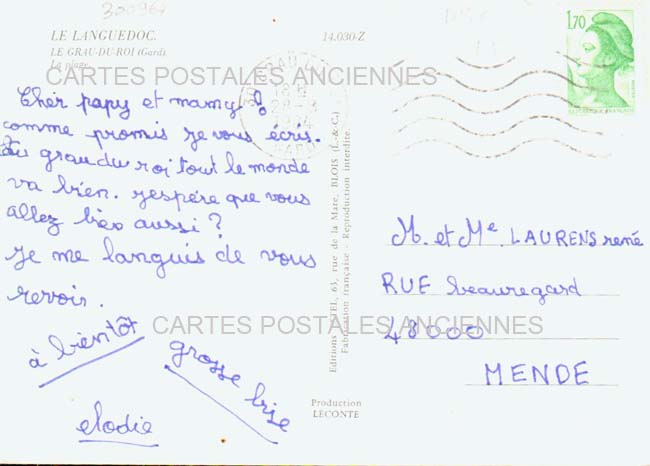 300964
LE LANGUEDOC.
LE GRAU-DU-ROI (Gard).
La plage.
14.030-Z
1,70
REPUBLIQUE FRANÇAISE
CARTES POSTALES ANCIENNES
Cher papy et mamy !
comme promis je vous écris.
au grau du roi tout le monde
va bien. j'espère que vous
allez bien aussi ?
je me languis de vous
revoir.
à bientôt
grosse bise
elodie
Editions ESTEL, 63, rue de la Mare, BLOIS (L.-&-C.)
Fabrication française - Reproduction interdite.
Production
LECONTE
M. et Me LAURENS rené
RUE beauregard
48000
MENDE
CARTES POSTALES ANCIENNES